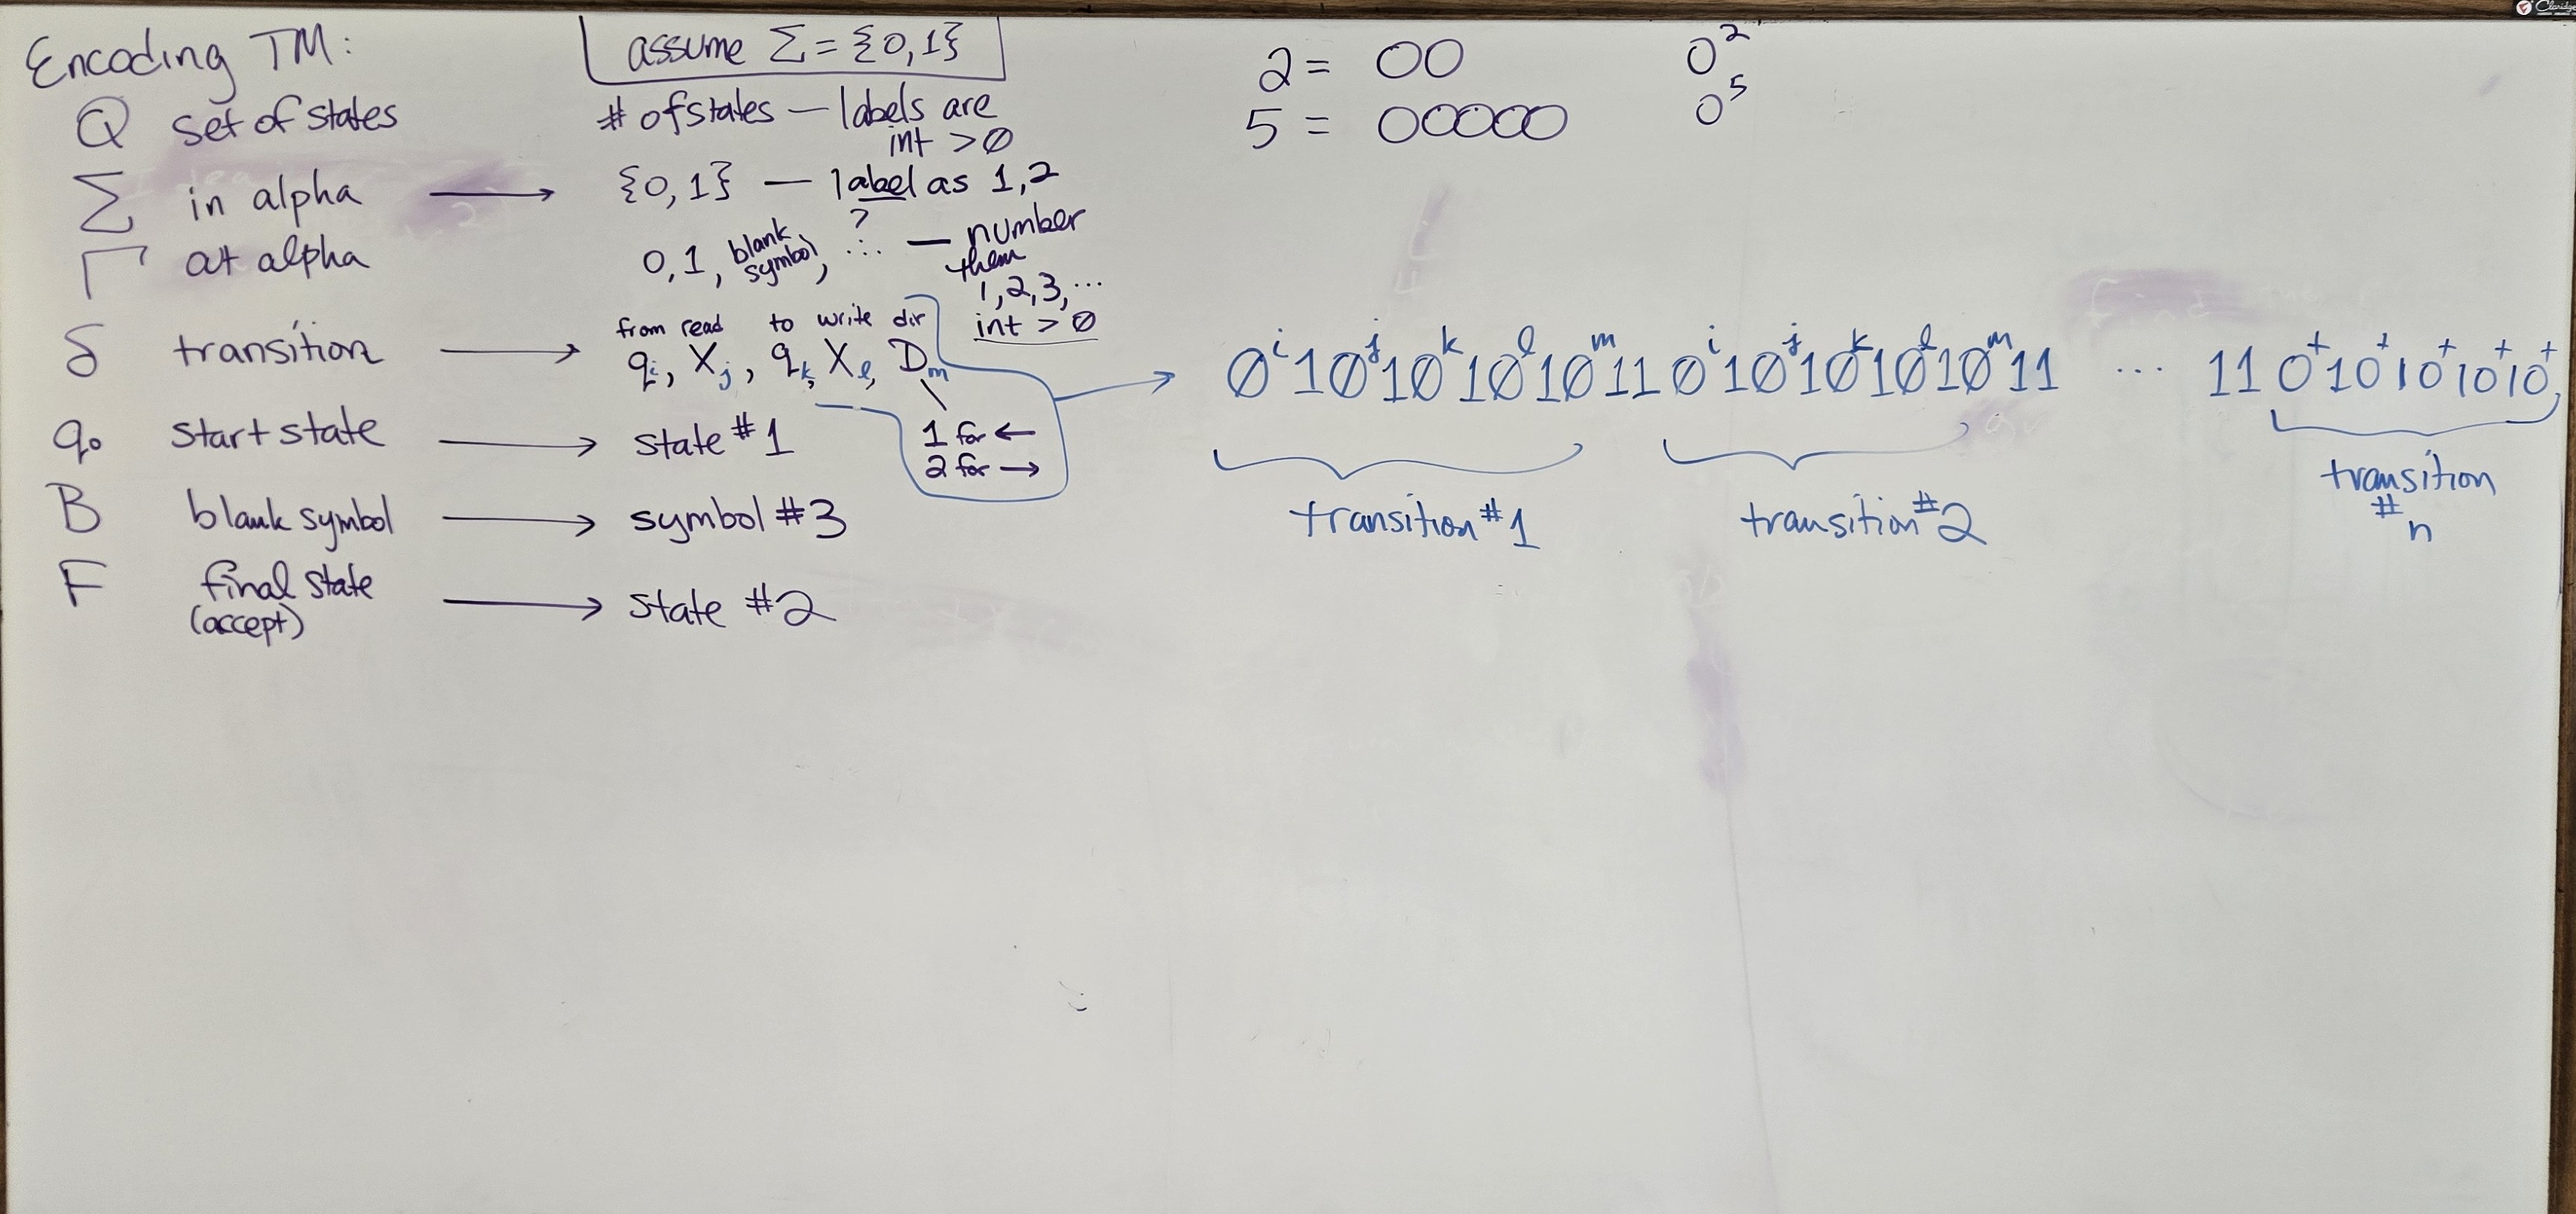 Encoding TM:
assume Σ = {0,1}
Q set of states
# of states — labels are
int > 0
Σ in alpha → {0,1} — label as 1,2
Γ out alpha
0, 1, blank symbol, ?... — number
them
1, 2, 3, ...
int > 0
from read to write dir
δ transition → qᵢ, Xⱼ, qₖ, Xₗ, Dₘ
1 for ←
2 for →
q₀ start state → state #1
B blank symbol → symbol #3
F final state → state #2
(accept)
2 = 00 0²
5 = 00000 0⁵
→ 0ⁱ10ʲ10ᵏ10ˡ10ᵐ11 0ⁱ10ʲ10ᵏ10ˡ10ᵐ11 ... 11 0⁺10⁺10⁺10⁺10⁺
transition #1
transition #2
transition
#
n